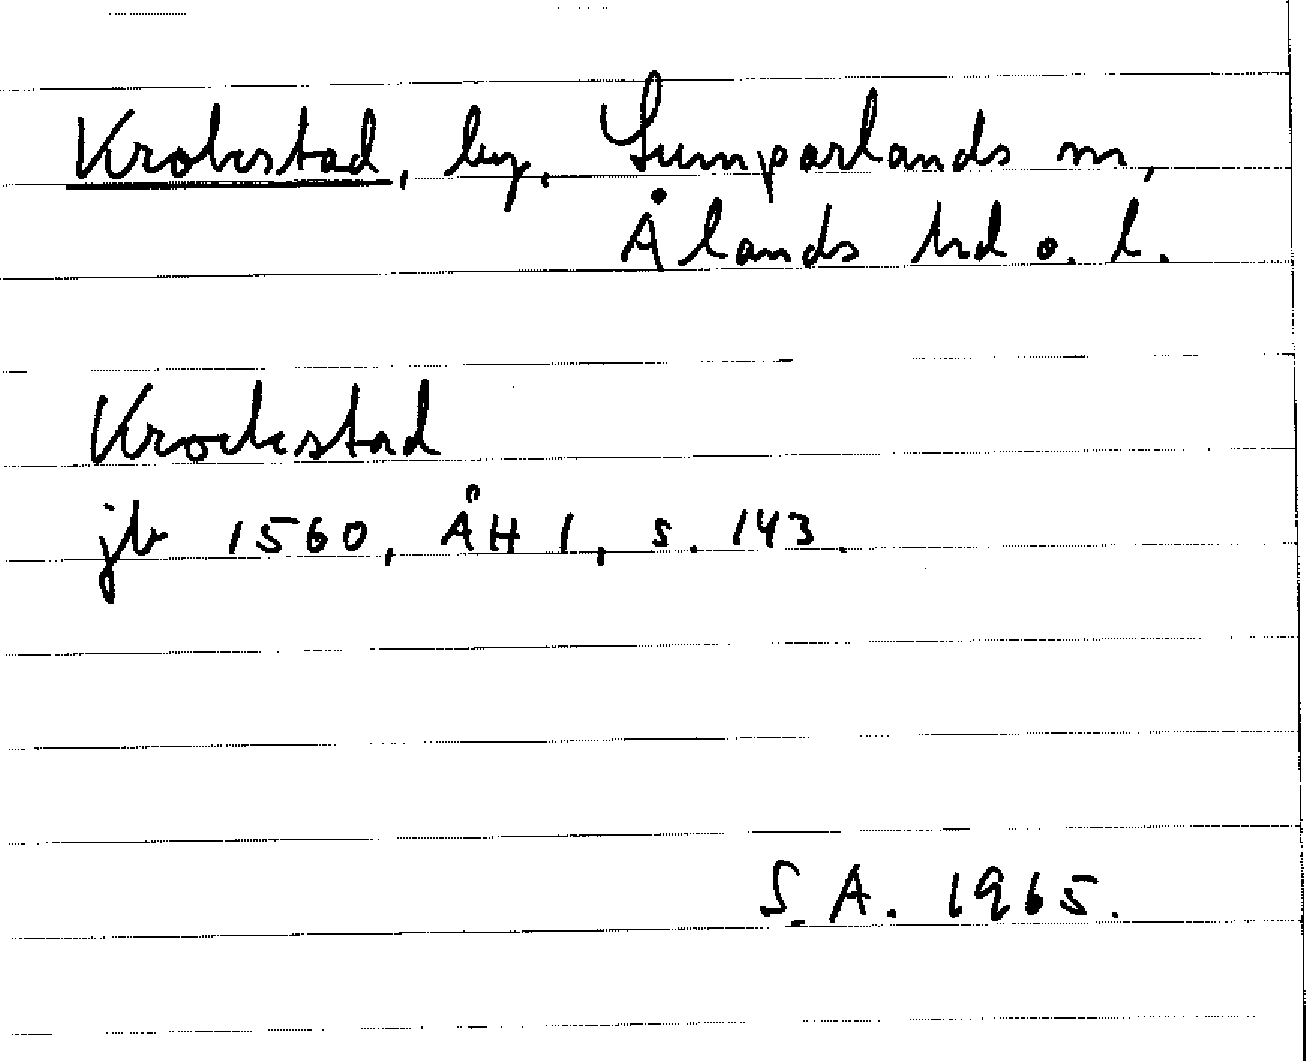 Krokstad, by, Lumparlands sn,
Ålands hd o. l.
Krockstad
jb 1560, ÅH 1, s. 143.
S.A. 1965.